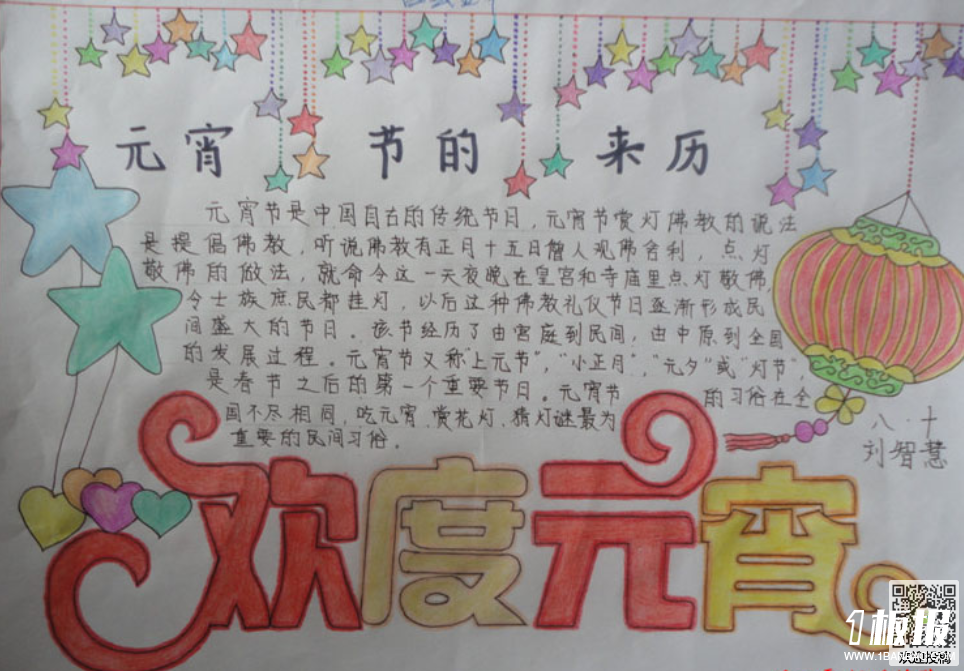 元宵节的来历
元宵节是中国自古的传统节日，元宵节赏灯佛教的说法
是提倡佛教，听说佛教有正月十五日僧人观佛舍利，点灯
敬佛的做法，就命令这一天夜晚在皇宫和寺庙里点灯敬佛
令士族庶民都挂灯，以后这种佛教礼仪节日逐渐形成民
间盛大的节日。该节经历了由宫庭到民间，由中原到全国
的发展过程。元宵节又称上元节"，"小正月"，"元夕"或"灯节"，
是春节之后的第一个重要节日。元宵节的习俗在全
国不尽相同，吃元宵、赏花灯、猜灯谜最为
重要的民间习俗。
八·十
刘智慧
欢度元宵
1板报
WWW.1BANBAO.COM